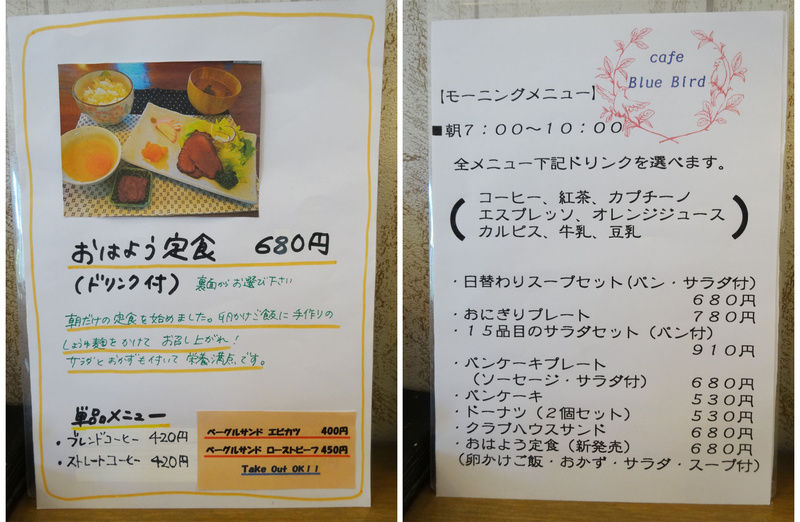 おはよう定食 680円
(ドリンク付) 裏面からお選び下さい
朝だけの定食を始めました。卵かけご飯に手作りの
しょうゆ麹をかけて お召し上がれ!
サラダとおかずも付いて 栄養満点です。
単品メニュー
・ブレンドコーヒー 420円
・ストレートコーヒー 420円
ベーグルサンド エビカツ 400円
ベーグルサンド ローストビーフ 450円
Take Out OK!!
cafe
Blue Bird
【モーニングメニュー】
■朝7:00~10:00
全メニュー下記ドリンクを選べます。
コーヒー、紅茶、カプチーノ
エスプレッソ、オレンジジュース
カルピス、牛乳、豆乳
・日替わりスープセット(パン・サラダ付)
680円
・おにぎりプレート 780円
・15品目のサラダセット(パン付)
910円
・パンケーキプレート
(ソーセージ・サラダ付) 680円
・パンケーキ 530円
・ドーナツ(2個セット) 530円
・クラブハウスサンド 680円
・おはよう定食(新発売) 680円
(卵かけご飯・おかず・サラダ・スープ付)